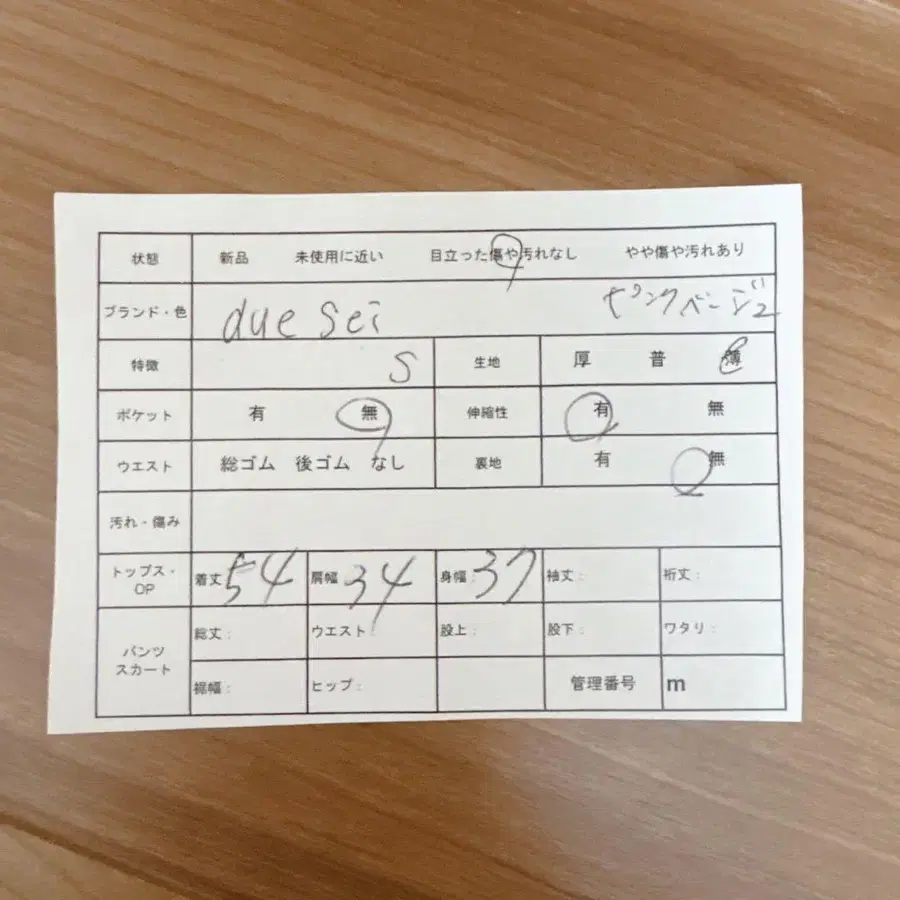 状態 新品 未使用に近い 目立った傷や汚れなし やや傷や汚れあり
ブランド・色 due sei ピンクベージュ
特徴 S 生地 厚 普 薄
ポケット 有 無 伸縮性 有 無
ウエスト 総ゴム 後ゴム なし 裏地 有 無
汚れ・傷み
トップス・OP 着丈 54 肩幅 34 身幅: 37 袖丈: 裄丈:
パンツ スカート 総丈: ウエスト: 股上: 股下: ワタリ:
裾幅: ヒップ: 管理番号 m